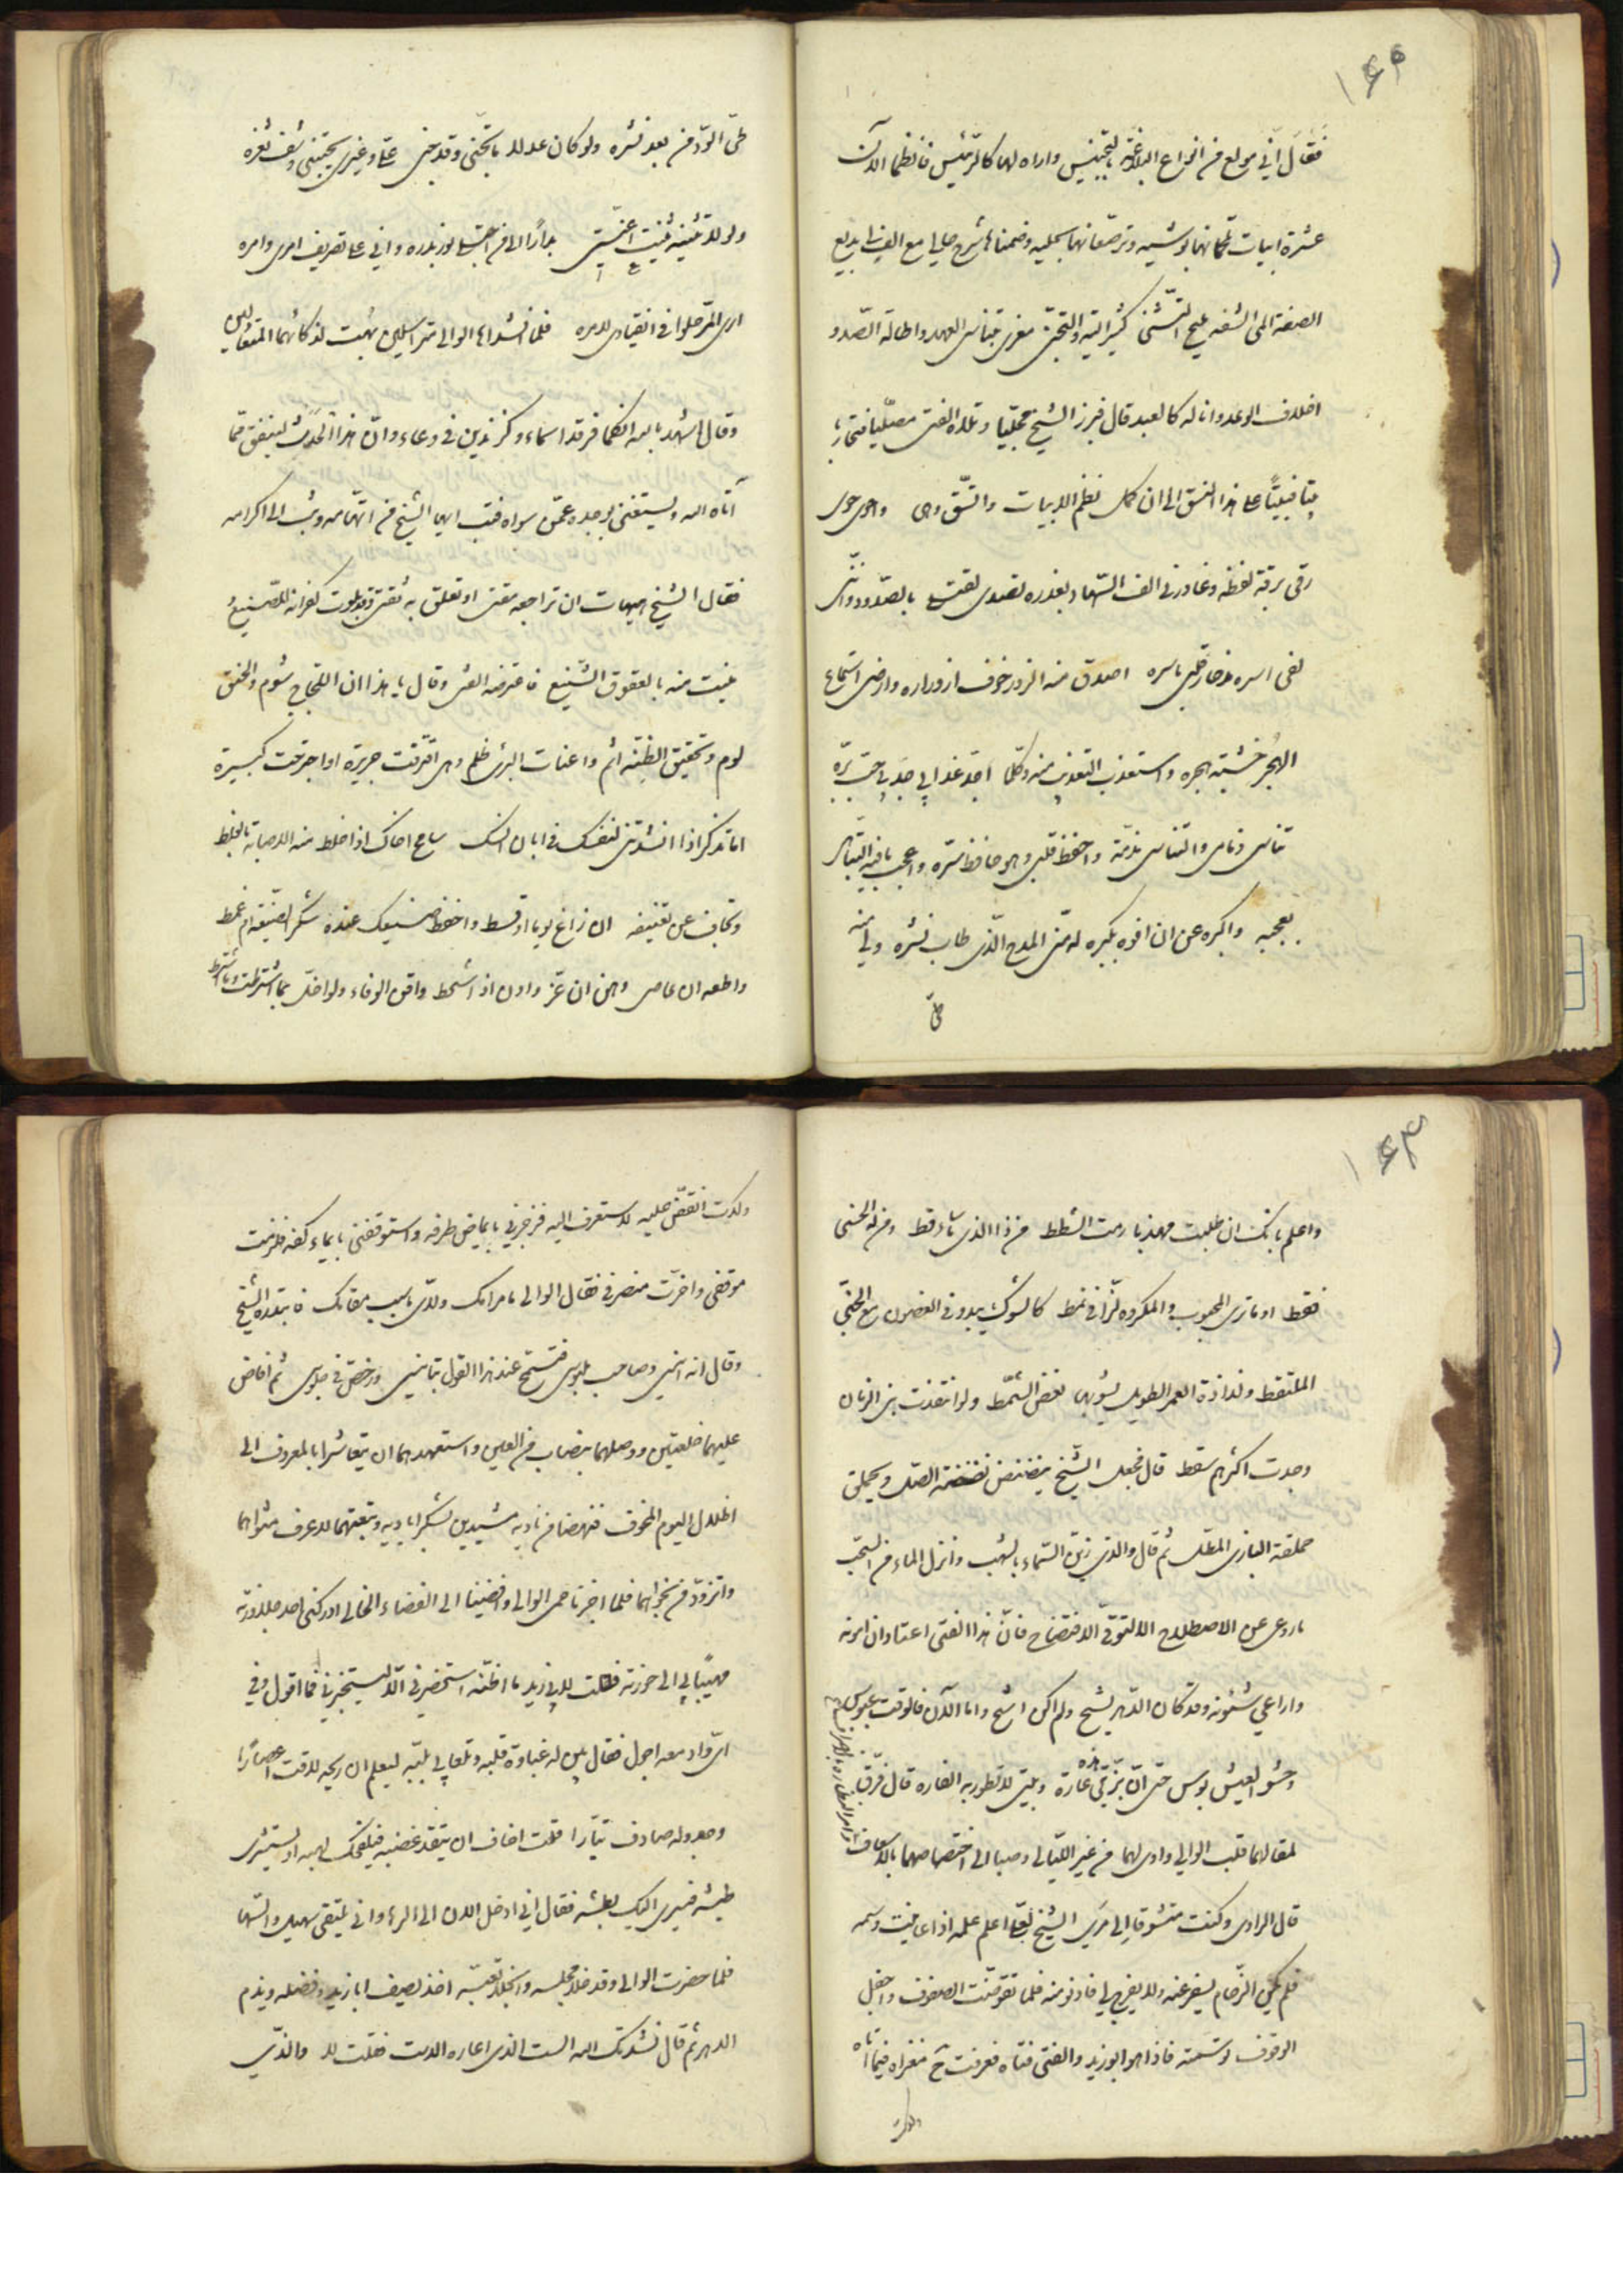 ١٤٢
فقال انى مولع من انواع البلاغة بالتجنيس واراه لها كالرئيس فانظما الآن
عشرة ابيات تلحمانها بوشيه وترصعانها بحليه وضمناها شرح حالى مع الف لى بديع
الصفة المى الشفه مليح التثنى كثير التيه والتجنى مغرى بتناسى العهد واطالة الصدود
اخلاف الوعد وانا له كالعبد قال فبرز الشيخ مجليا وتلاه الفتى مصليا فتجاريا
بيتا فبيتا على هذا النسق الى ان كمل نظم الابيات واتسق وهى واحوى حوى
رقى برقة لفظه وغادرنى الف السهاد بغدره تصدى لقتلى بالصدود واننى
لفى اسره مذ حاز قلبى باسره اصدق منه الزور خوف ازوراره وارضى استماع
الهجر خشية هجره واستعذب التعذيب منه وكلما اجد عذابى جد بى حب بره
تناسى ذمامى والتناسى مذمة واحفظ قلبى وهو حافظ سره واعجب ما فيه التباهى
بعجبه واكبره عن ان افوه بكبره له منى المدح الذى طاب نشره ولى منه
طى
طى الود من بعد نشره ولو كان عدلا ما تجنى وقد جنى على وغيرى يجتنى رشف ثغره
ولولا تثنيه ثنيت اعنتى بدارا الى من اجتلى نور بدره وانى على تصريف امرى وامره
ارى المر حلوا فى انقيادى لامره فلما انشداها الوالى متراسلين بهت لذكائهما المتعادلين
وقال اشهد بالله انكما فرقدا سماء وكزندين فى وعاء وان هذا الحدث لينفق مما
آتاه الله ويستغنى بوجده عمن سواه فتب ايها الشيخ من اتهامه وثب الى اكرامه
فقال الشيخ هيهات ان تراجعه مقتى او تعلق به ثقتى وقد بلوت كفرانه للصنيع
ومنيت منه بالعقوق الشنيع فاعترضه الفتى وقال يا هذا ان اللجاج شوم والحنق
لوم وتحقيق الظنة اثم واعنات البرى ظلم وهبنى اقترفت جريرة او اجترحت كبيرة
اما تذكر اذا انشدتنى لنفسك فى ابان انسك سامح اخاك اذا خلط منه الاصابة بالغلط
وتجاف عن تعنيفه ان زاغ يوما او قسط واحفظ صنيعك عنده شكر الصنيعة ام غمط
واطعه ان عاصى وهن ان عز وادن اذا شحط واقن الوفاء ولو اخل بما اشترطت وما اشترط
١٤٣
واعلم بانك ان طلبت مهذبا رمت الشطط من ذا الذى ما ساء قط ومن له الحسنى
فقط او ما ترى المحبوب والمكروه لزا فى نمط كالشوك يبدو فى الغصون مع الجنى
الملتقط ولذاذة العمر الطويل يشوبها نغص الشمط ولو انتقدت بنى الزمان
وجدت اكثرهم سقط قال فجعل الشيخ ينضنض نضنضة الصل ويحملق
حملقة البازى المطل ثم قال والذى زين السماء بالشهب وانزل الماء من السحب
ما روغى عن الاصطلاح الا لتوقى الافتضاح فان هذا الفتى اعتاد ان امونه
واراعى شئونه وقد كان الدهر يسح ولم اكن اشح واما الآن فالوقت عبوس
وحشو العيش بوس حتى ان بزتى هذه عارة وبيتى لا تطور به الفاره قال فرق
لمقالهما قلب الوالى واوى لهما من غير الليالى وصبا الى اختصاصهما بالاسعاف
وامر النظارة بالانصراف
قال الراوى وكنت متشوقا الى مراى الشيخ لعلى اعلم علمه اذا عاينت وسمه
فلم يكن الزحام يسفر عنه ولا يفرج لى فادنو منه فلما تقوضت الصفوف واجفل
الوقوف توسمته فاذا هو ابو زيد والفتى فتاه فعرفت ح مغزاه فيما اتاه
وكدت
وكدت انقض عليه لاستعرف اليه فزجرنى بايماض طرفه واستوقفنى بايماء كفه فلزمت
موقفى واخرت منصرفى فقال الوالى ما مرامك ولاى سبب مقامك فابتدره الشيخ
وقال انه انيسى وصاحب ملبوسى فتسمح عند هذا القول بتانيسى ورخص فى جلوسى ثم افاض
عليهما خلعتين ووصلهما بنصاب من العين واستعهدهما ان يتعاشرا بالمعروف الى
اظلال اليوم المخوف فنهضا من ناديه مشيدين بشكر اياديه وتبعتهما لاعرف مثواهما
واتزود من نجواهما فلما اجزنا حمى الوالى وافضينا الى الفضاء الخالى ادركنى احد جلاوزته
مهيبا بى الى حوزته فقلت لابى زيد ما اظنه استحضرنى الا ليستخبرنى فما اقول وفى
اى واد معه اجول فقال بين له غباوة قلبه وتلعابى بلبه ليعلم ان ريحه لاقت اعصارا
وجدوله صادف تيارا فقلت اخاف ان يتقد غضبه فيلفحك لهبه او يستشرى
طيشه فيسرى اليك بطشه فقال انى ارحل الآن الى الرها وانى يلتقى سهيل والسها
فلما حضرت الوالى وقد خلا مجلسه وانجلى تعبسه اخذ يصف ابا زيد وفضله ويذم
الدهر ثم قال نشدتك الله الست الذى اعاره الدست فقلت لا والذى